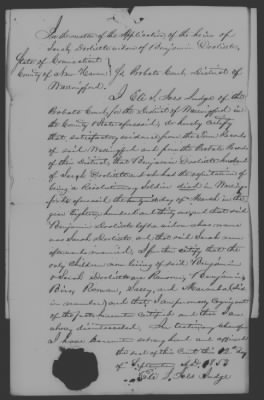 In the matter of the Application of the heirs of
Sarah Doolittle widow of Benjamin Doolittle,
State of Connecticut
County of New Haven } ss Probate Court District of
Wallingford.
I Eli S. Ives Judge of the
Probate Court for the District of Wallingford in
the County & State aforesaid, do hereby certify
that, satisfactory evidence from the Town Records
of said Wallingford and from the Probate Records
of this District, that Benjamin Doolittle husband
of Sarah Doolittle and who had the reputation of
being a Revolutionary Soldier died in Walling-
ford aforesaid on the day of March in the
year Eighteen hundred and thirty and that said
Benjamin Doolittle left a widow whose name
was Sarah Doolittle and that said Sarah never
afterwards married, I further certify that the
only Children now living of said Benjamin
& Sarah Doolittle are Benjamin,
Roman, and
in number) and that I am personally cognizant
of the facts herein certified to and that I am
disinterested. In testimony whereof
I have hereunto set my hand and affixed
the seal of this Court this day
of September A.D. 1853
Eli S. Ives Judge